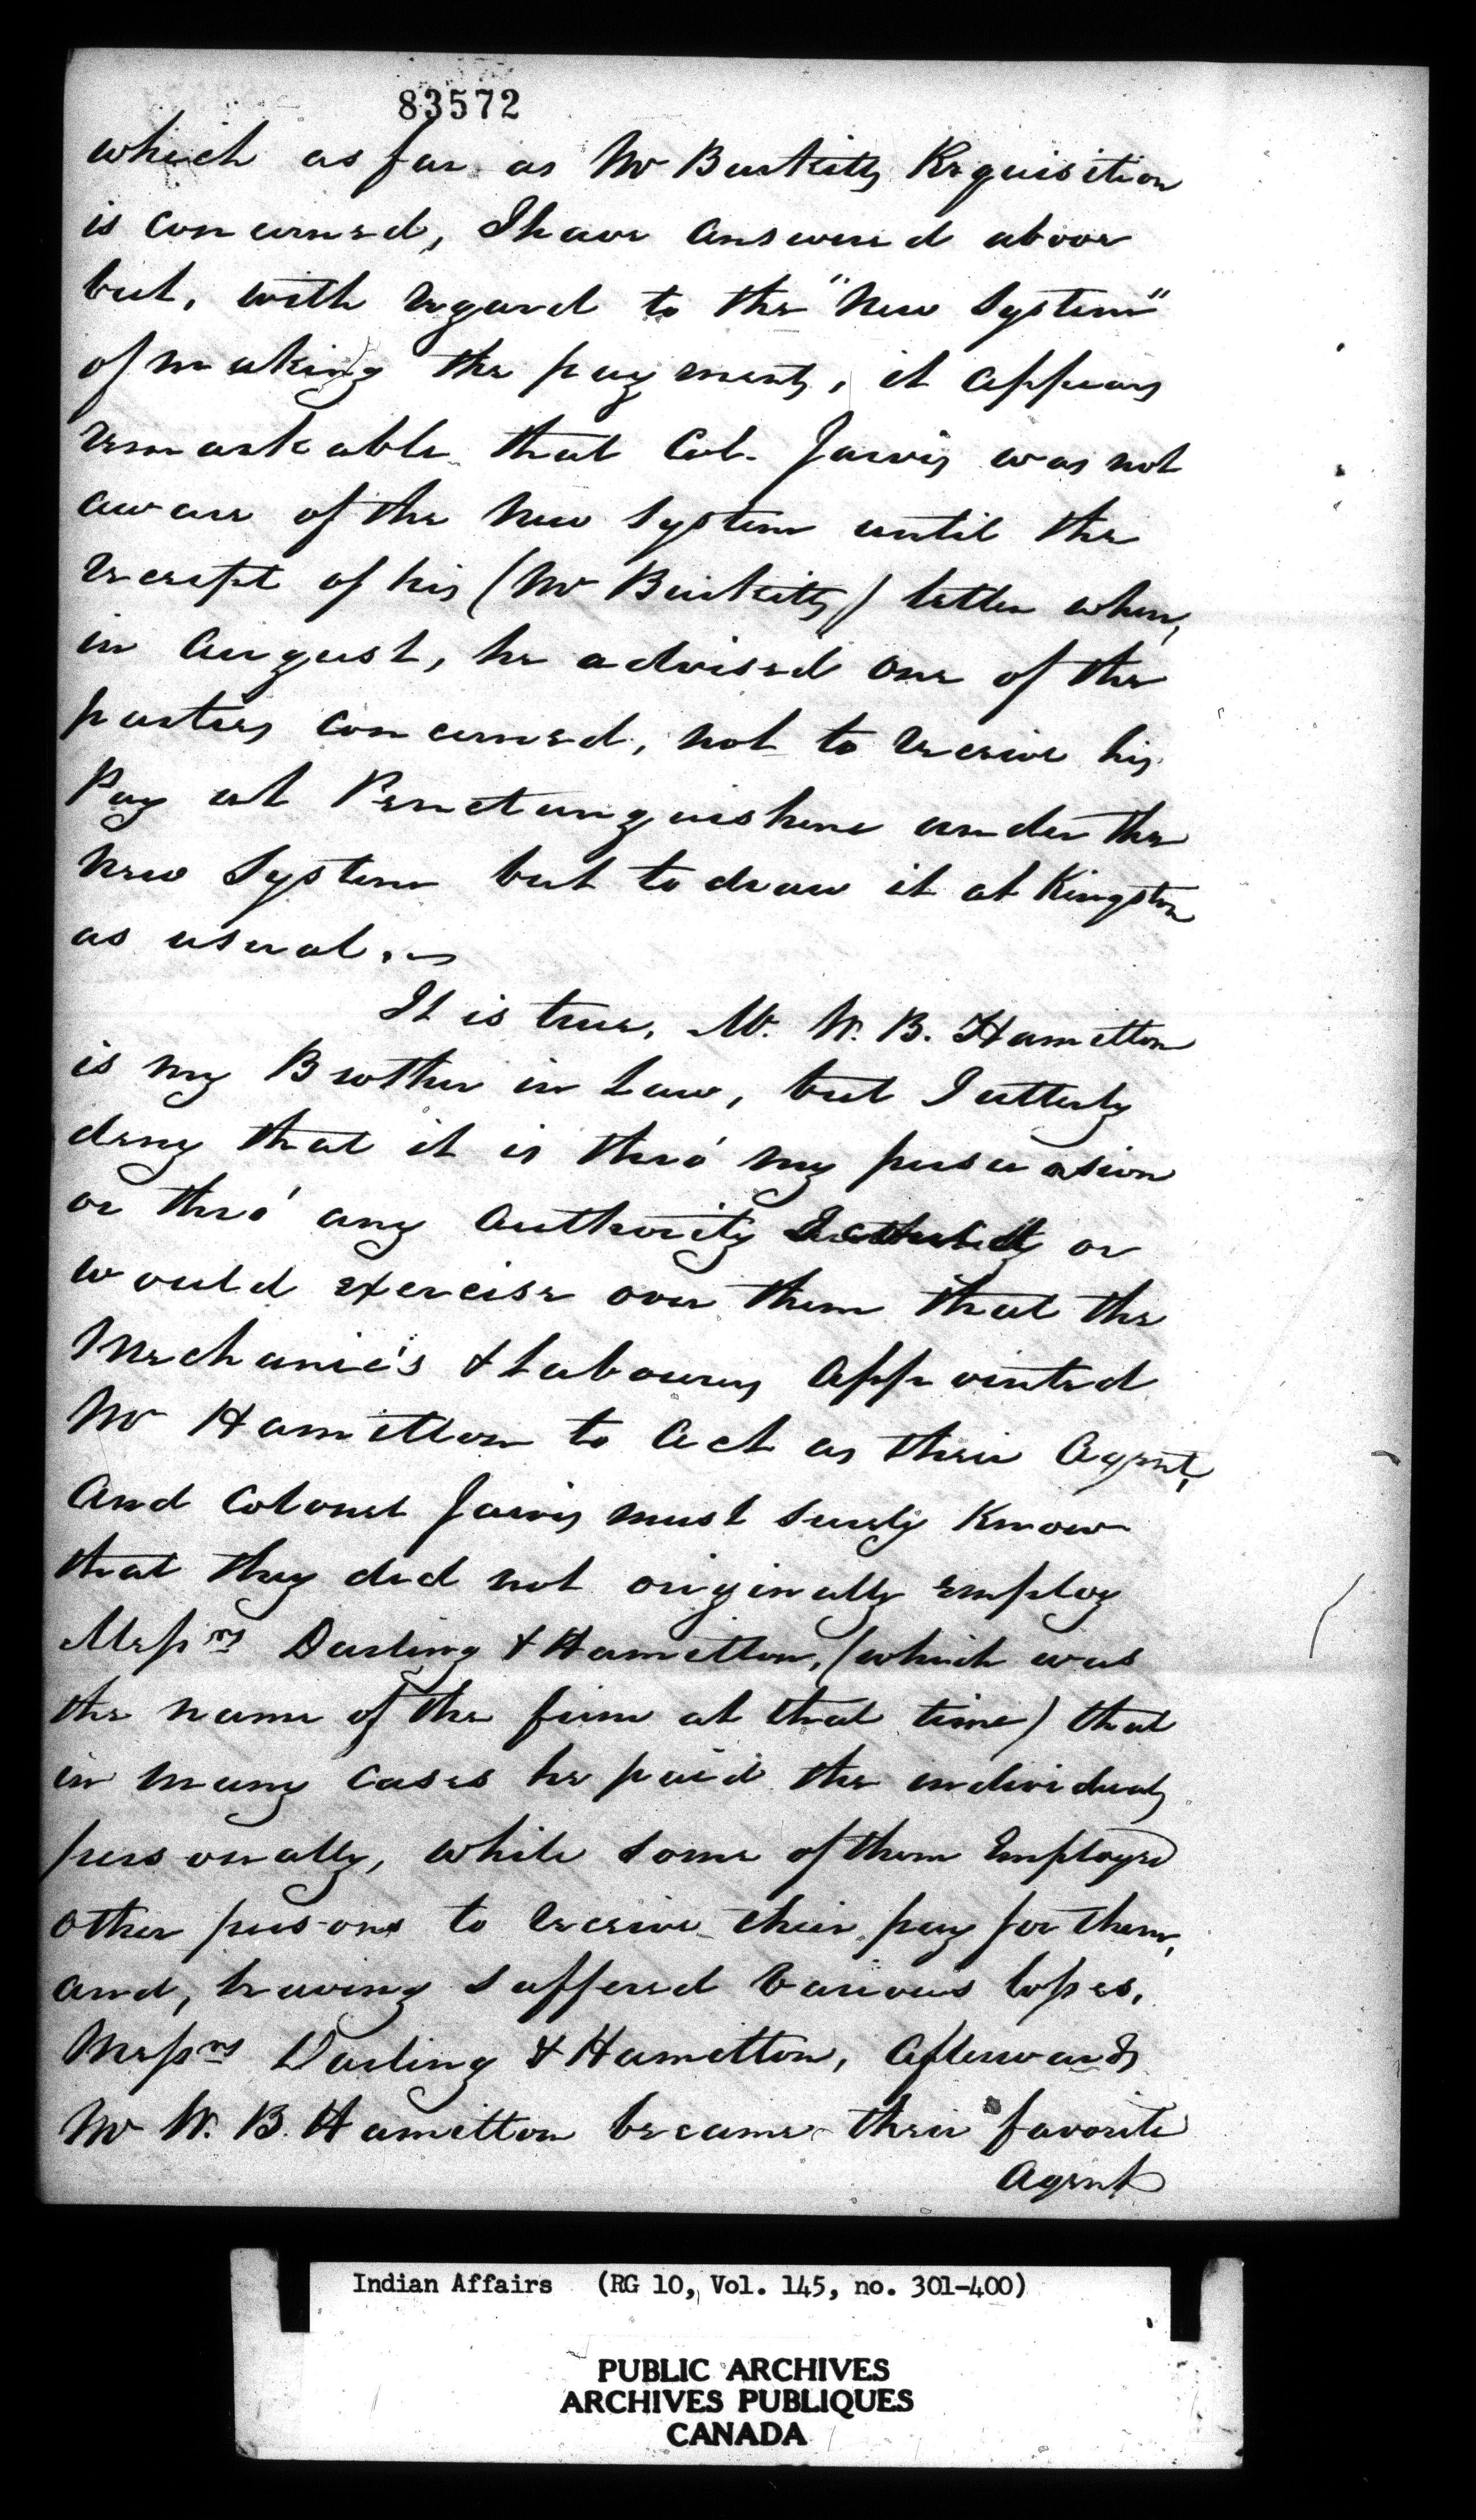 83572
which as far as Mr Burkitts Requisition
is concerned, I have answered above
but, with regard to the "New System"
of making the payments, it appears
remarkable that Col. Jarvis was not
aware of the New System until the
receipt of his (Mr Burkitts) letter when,
in August, he advised one of the
parties concerned, not to receive his
Pay at Penetanguishene under the
New System but to draw it at Kingston
as usual.
It is true, Mr. W. B. Hamilton
is my Brother in Law, but I utterly
deny that it is thro' my persuasion
or thro' any authority or
would exercise over them that the
Mechanic's & Labourers appointed
Mr Hamilton to act as their Agent,
and Colonel Jarvis must surely know
that they did not originally employ
Messrs Darling & Hamilton, (which was
the name of the firm at that time) that
in many cases he paid the individuals
personally, while some of them employed
other persons to receive their pay for them,
and, having suffered various losses,
Messrs Darling & Hamilton, afterwards
Mr W. B. Hamilton became their favorite
Agent
Indian Affairs (RG 10, Vol. 145, no. 301-400)
PUBLIC ARCHIVES
ARCHIVES PUBLIQUES
CANADA